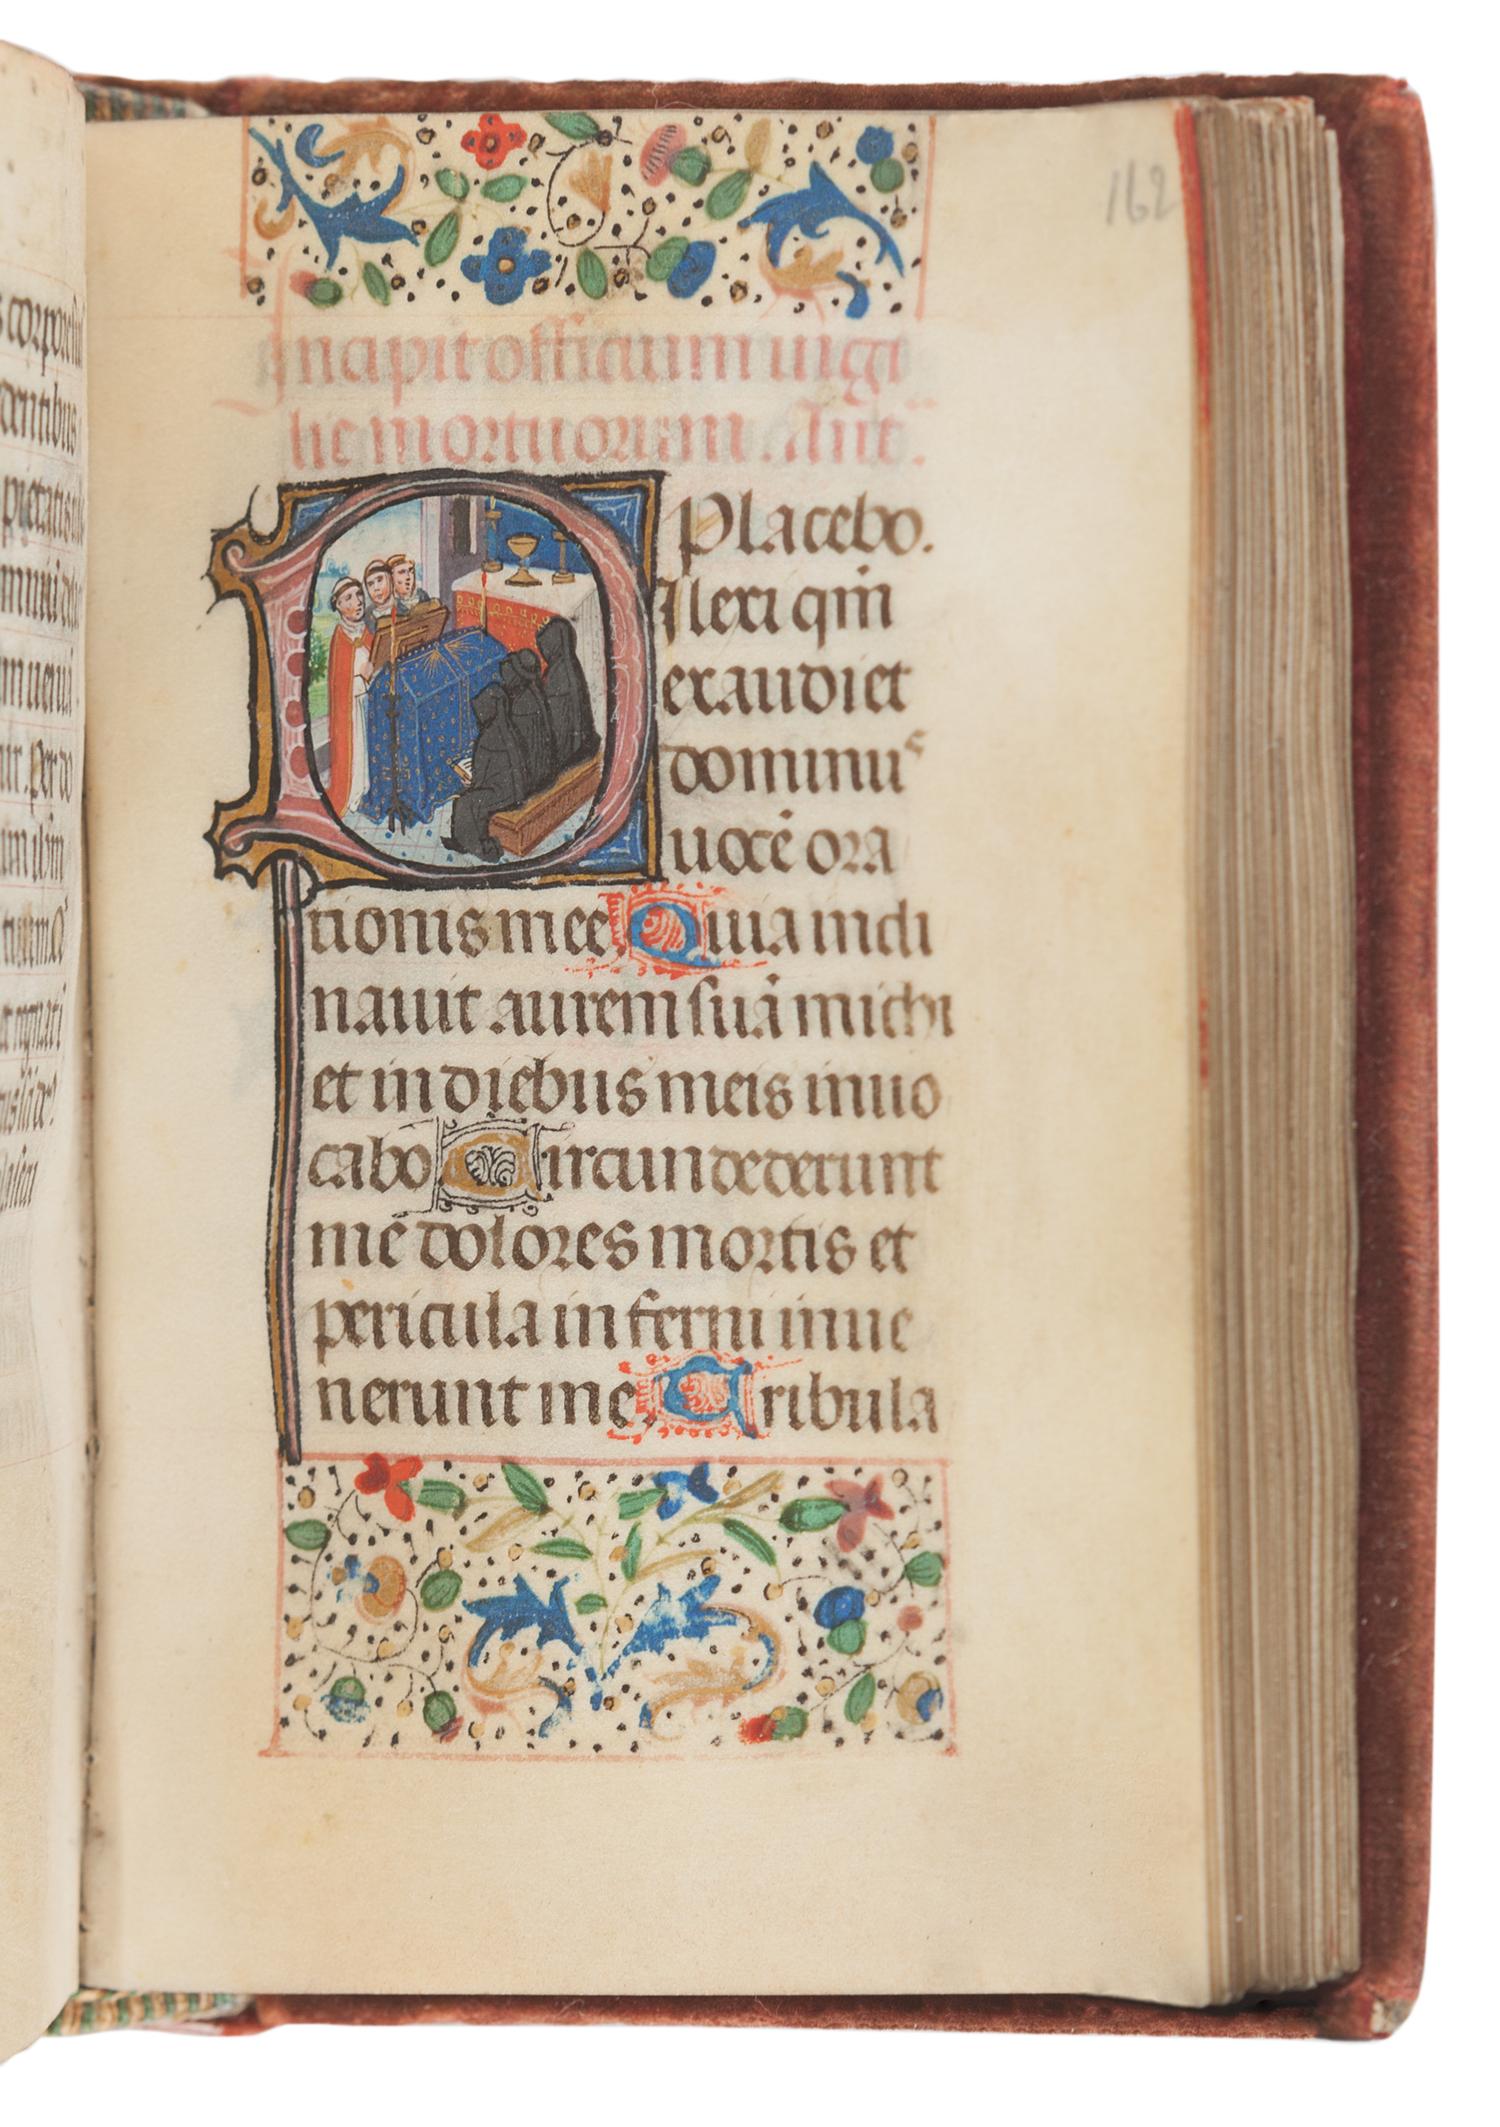 162
Incipit officium uigi
lie mortuorum. Ant.
Placebo.
DIlexi qm̄
exaudiet
dominus
uocē ora
tionis mee. Quia incli
nauit aurem suā michi
et in diebus meis inuo
cabo Circundederunt
me dolores mortis et
pericula inferni inue
nerunt me. Tribula